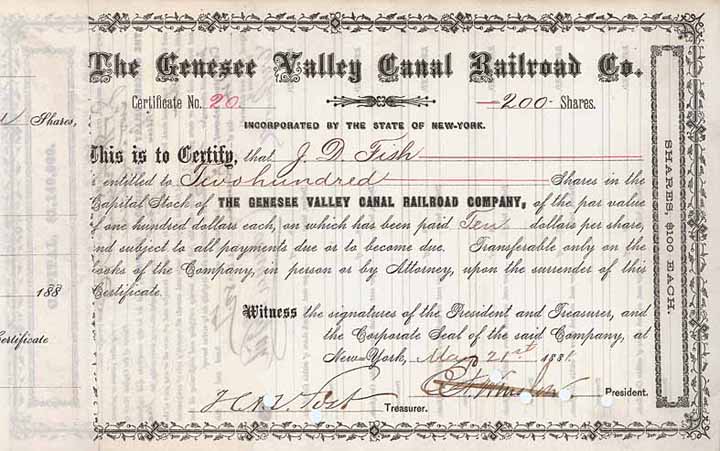 The Genesee Valley Canal Railroad Co.
Certificate No. 20 200 Shares.
INCORPORATED BY THE STATE OF NEW-YORK.
Shares,
This is to Certify, that J. D. Fish
is entitled to Two hundred Shares in the
Capital Stock of THE GENESEE VALLEY CANAL RAILROAD COMPANY, of the par value
of one hundred dollars each, on which has been paid Ten dollars per share,
and subject to all payments due or to become due. Transferable only on the
books of the Company, in person or by Attorney, upon the surrender of this
Certificate.
188
Witness the signatures of the President and Treasurer, and
the Corporate Seal of the said Company, at
Certificate
New-York, May 21st 1881
President.
Treasurer.
SHARES, $100 EACH.